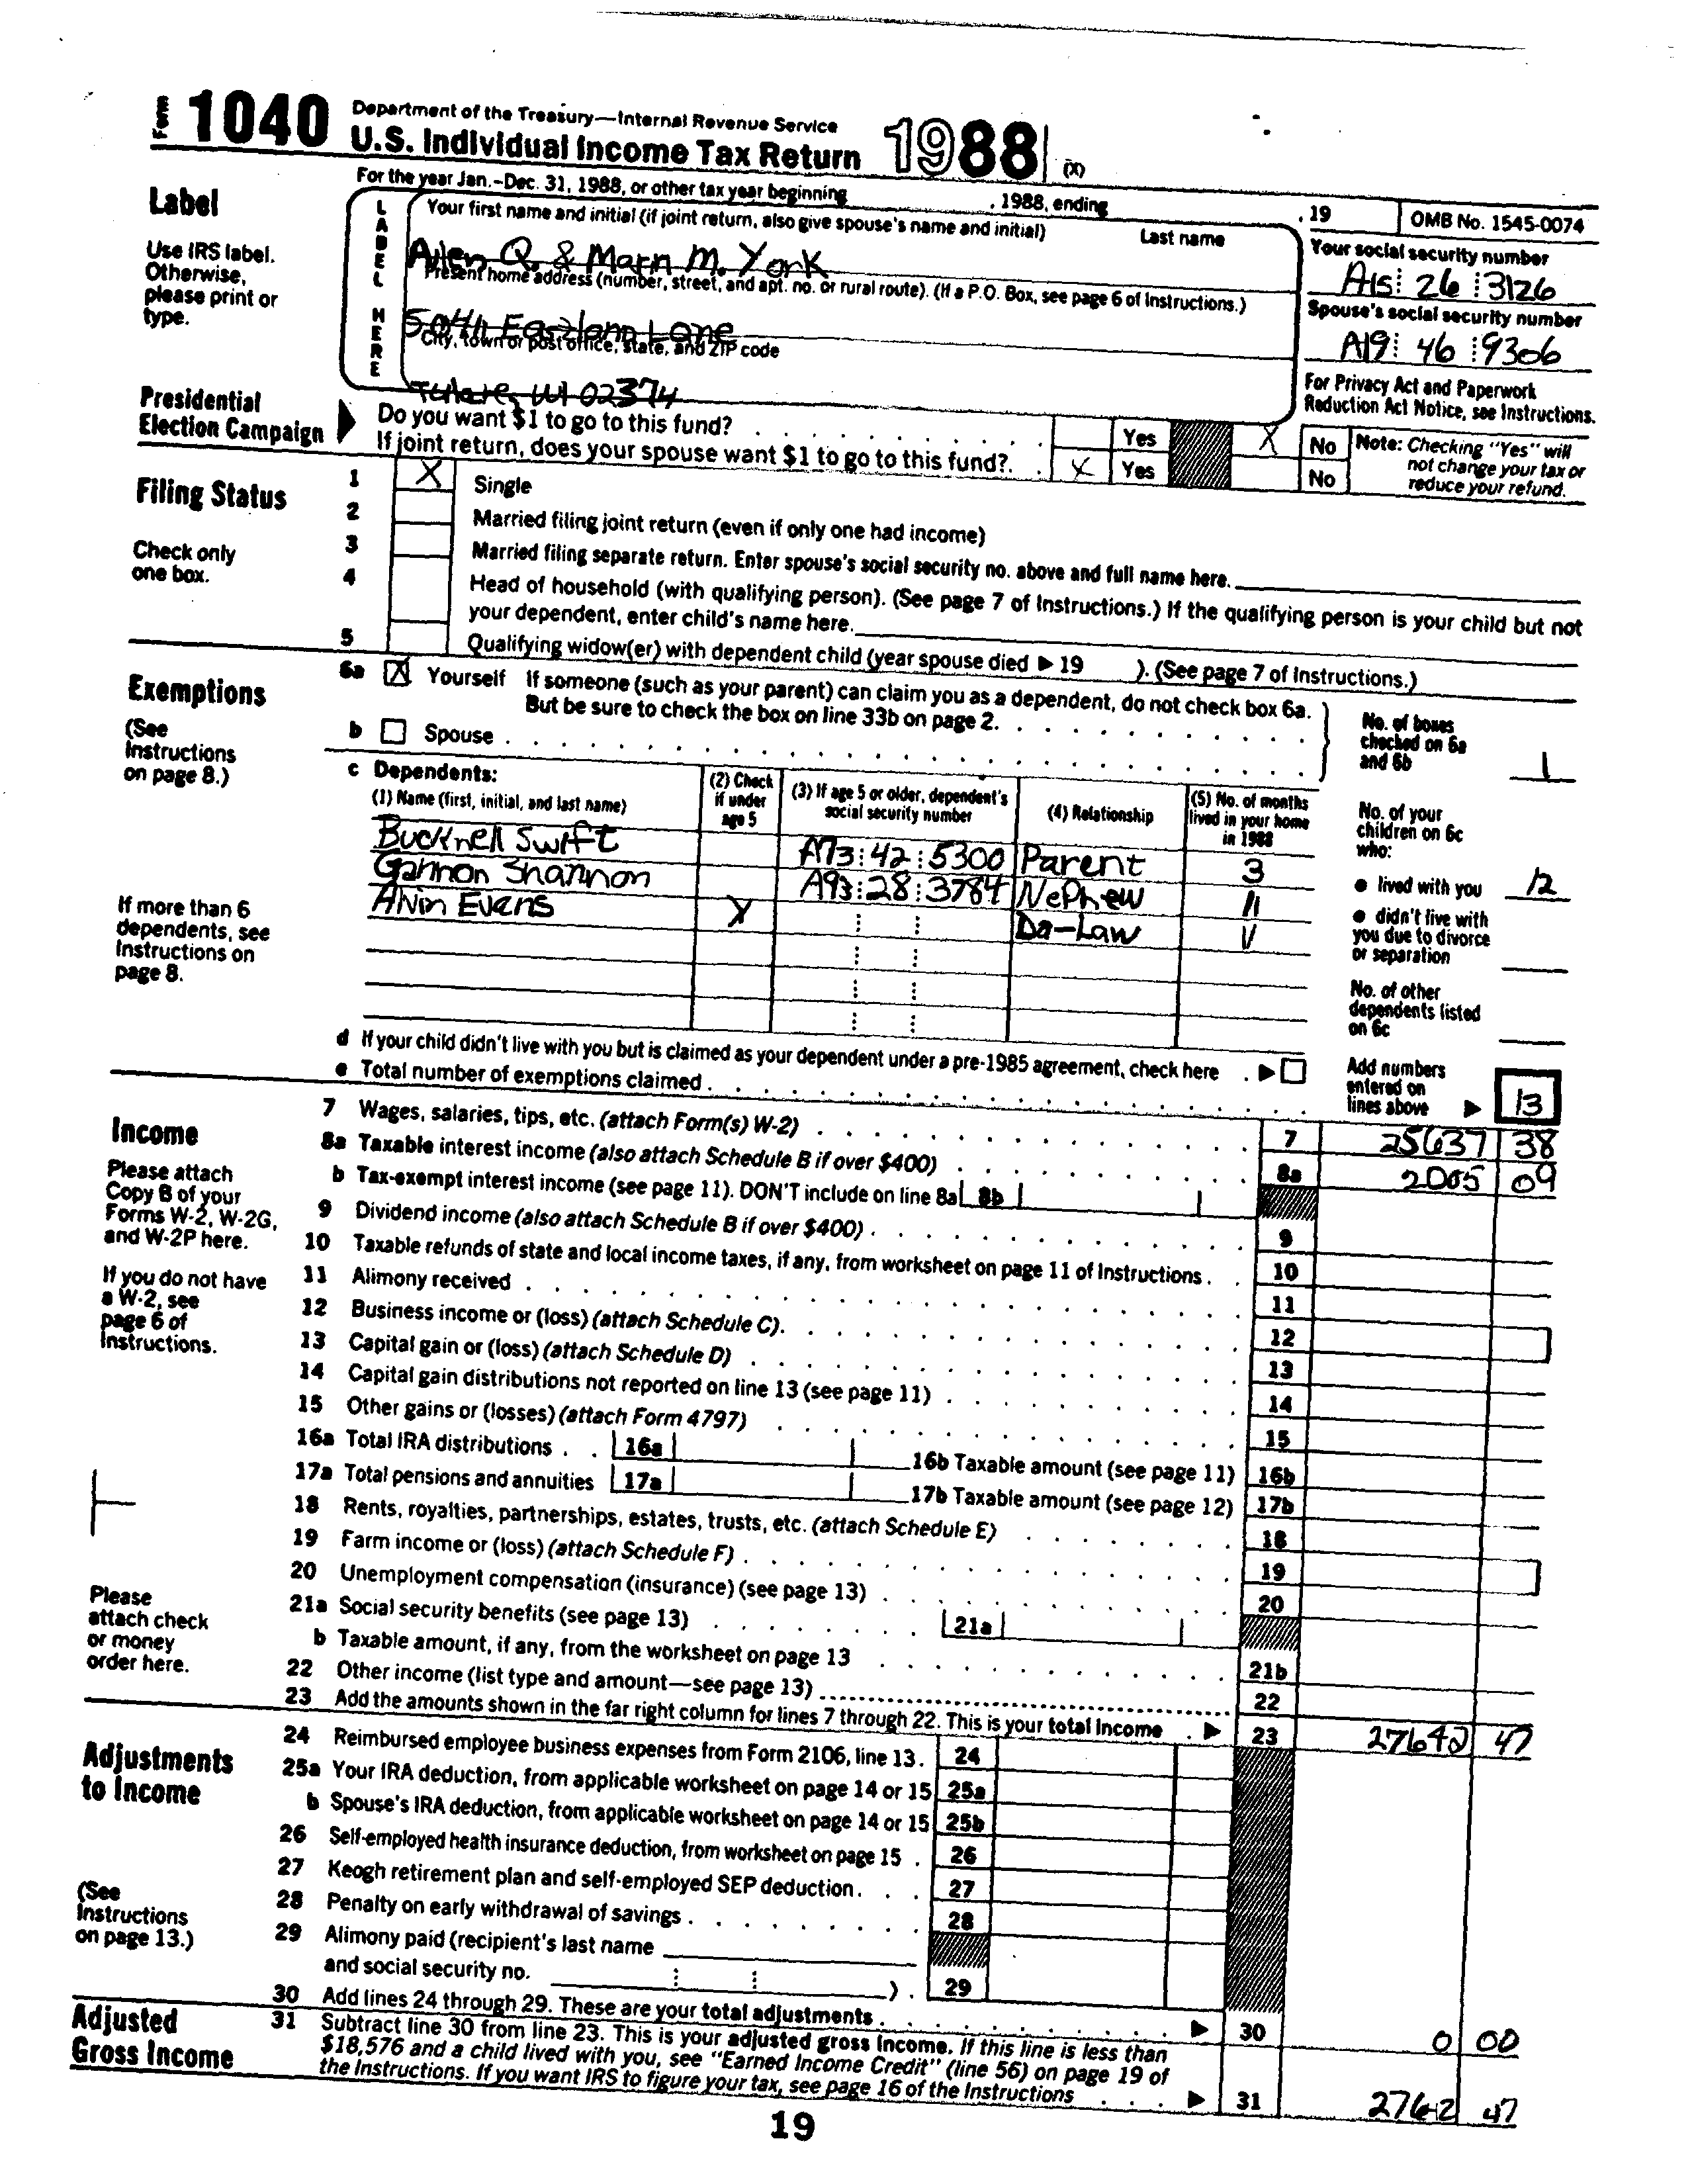 Form 1040 Department of the Treasury—Internal Revenue Service
U.S. Individual Income Tax Return 1988 (X)
For the year Jan.-Dec. 31, 1988, or other tax year beginning , 1988, ending , 19 OMB No. 1545-0074
Label
Use IRS label. Otherwise, please print or type.
LABEL HERE
Your first name and initial (if joint return, also give spouse's name and initial) Last name
Q. & M. York
Your social security number
A15 26 3126
Present home address (number, street, and apt. no. or rural route). (If a P.O. Box, see page 6 of Instructions.)
Lane
Spouse's social security number
A19 46 9306
City, town or post office, state, and ZIP code
Tulare, WI 02374
For Privacy Act and Paperwork Reduction Act Notice, see Instructions.
Presidential Election Campaign
Do you want $1 to go to this fund? Yes X No
If joint return, does your spouse want $1 to go to this fund? X Yes No
Note: Checking "Yes" will not change your tax or reduce your refund.
Filing Status
Check only one box.
1 X Single
2 Married filing joint return (even if only one had income)
3 Married filing separate return. Enter spouse's social security no. above and full name here.
4 Head of household (with qualifying person). (See page 7 of Instructions.) If the qualifying person is your child but not
your dependent, enter child's name here.
5 Qualifying widow(er) with dependent child (year spouse died ▶ 19 ). (See page 7 of Instructions.)
Exemptions
(See Instructions on page 8.)
6a X Yourself If someone (such as your parent) can claim you as a dependent, do not check box 6a.
But be sure to check the box on line 33b on page 2.
b Spouse
No. of boxes checked on 6a and 6b 1
c Dependents:
(1) Name (first, initial, and last name) (2) Check if under age 5 (3) If age 5 or older, dependent's social security number (4) Relationship (5) No. of months lived in your home in 1988
Bucknell Swift A73 42 5300 Parent 3
Gannon Shannon A93 28 3784 Nephew 11
Alvin Evans X Da-Law
If more than 6 dependents, see Instructions on page 8.
No. of your children on 6c who:
● lived with you 12
● didn't live with you due to divorce or separation
No. of other dependents listed on 6c
d If your child didn't live with you but is claimed as your dependent under a pre-1985 agreement, check here ▶
e Total number of exemptions claimed
Add numbers entered on lines above ▶ 13
Income
Please attach Copy B of your Forms W-2, W-2G, and W-2P here.
If you do not have a W-2, see page 6 of Instructions.
7 Wages, salaries, tips, etc. (attach Form(s) W-2) 7 25637 38
8a Taxable interest income (also attach Schedule B if over $400) 8a 2005 09
b Tax-exempt interest income (see page 11). DON'T include on line 8a 8b
9 Dividend income (also attach Schedule B if over $400) 9
10 Taxable refunds of state and local income taxes, if any, from worksheet on page 11 of Instructions 10
11 Alimony received 11
12 Business income or (loss) (attach Schedule C) 12
13 Capital gain or (loss) (attach Schedule D) 13
14 Capital gain distributions not reported on line 13 (see page 11) 14
15 Other gains or (losses) (attach Form 4797) 15
16a Total IRA distributions 16a 16b Taxable amount (see page 11) 16b
17a Total pensions and annuities 17a 17b Taxable amount (see page 12) 17b
18 Rents, royalties, partnerships, estates, trusts, etc. (attach Schedule E) 18
19 Farm income or (loss) (attach Schedule F) 19
20 Unemployment compensation (insurance) (see page 13) 20
21a Social security benefits (see page 13) 21a
b Taxable amount, if any, from the worksheet on page 13 21b
22 Other income (list type and amount—see page 13) 22
23 Add the amounts shown in the far right column for lines 7 through 22. This is your total income ▶ 23 27642 47
Please attach check or money order here.
Adjustments to Income
(See Instructions on page 13.)
24 Reimbursed employee business expenses from Form 2106, line 13 24
25a Your IRA deduction, from applicable worksheet on page 14 or 15 25a
b Spouse's IRA deduction, from applicable worksheet on page 14 or 15 25b
26 Self-employed health insurance deduction, from worksheet on page 15 26
27 Keogh retirement plan and self-employed SEP deduction 27
28 Penalty on early withdrawal of savings 28
29 Alimony paid (recipient's last name
and social security no. ) 29
30 Add lines 24 through 29. These are your total adjustments ▶ 30 0 00
Adjusted Gross Income
31 Subtract line 30 from line 23. This is your adjusted gross income. If this line is less than
$18,576 and a child lived with you, see "Earned Income Credit" (line 56) on page 19 of
the Instructions. If you want IRS to figure your tax, see page 16 of the Instructions ▶ 31 2762 47
19